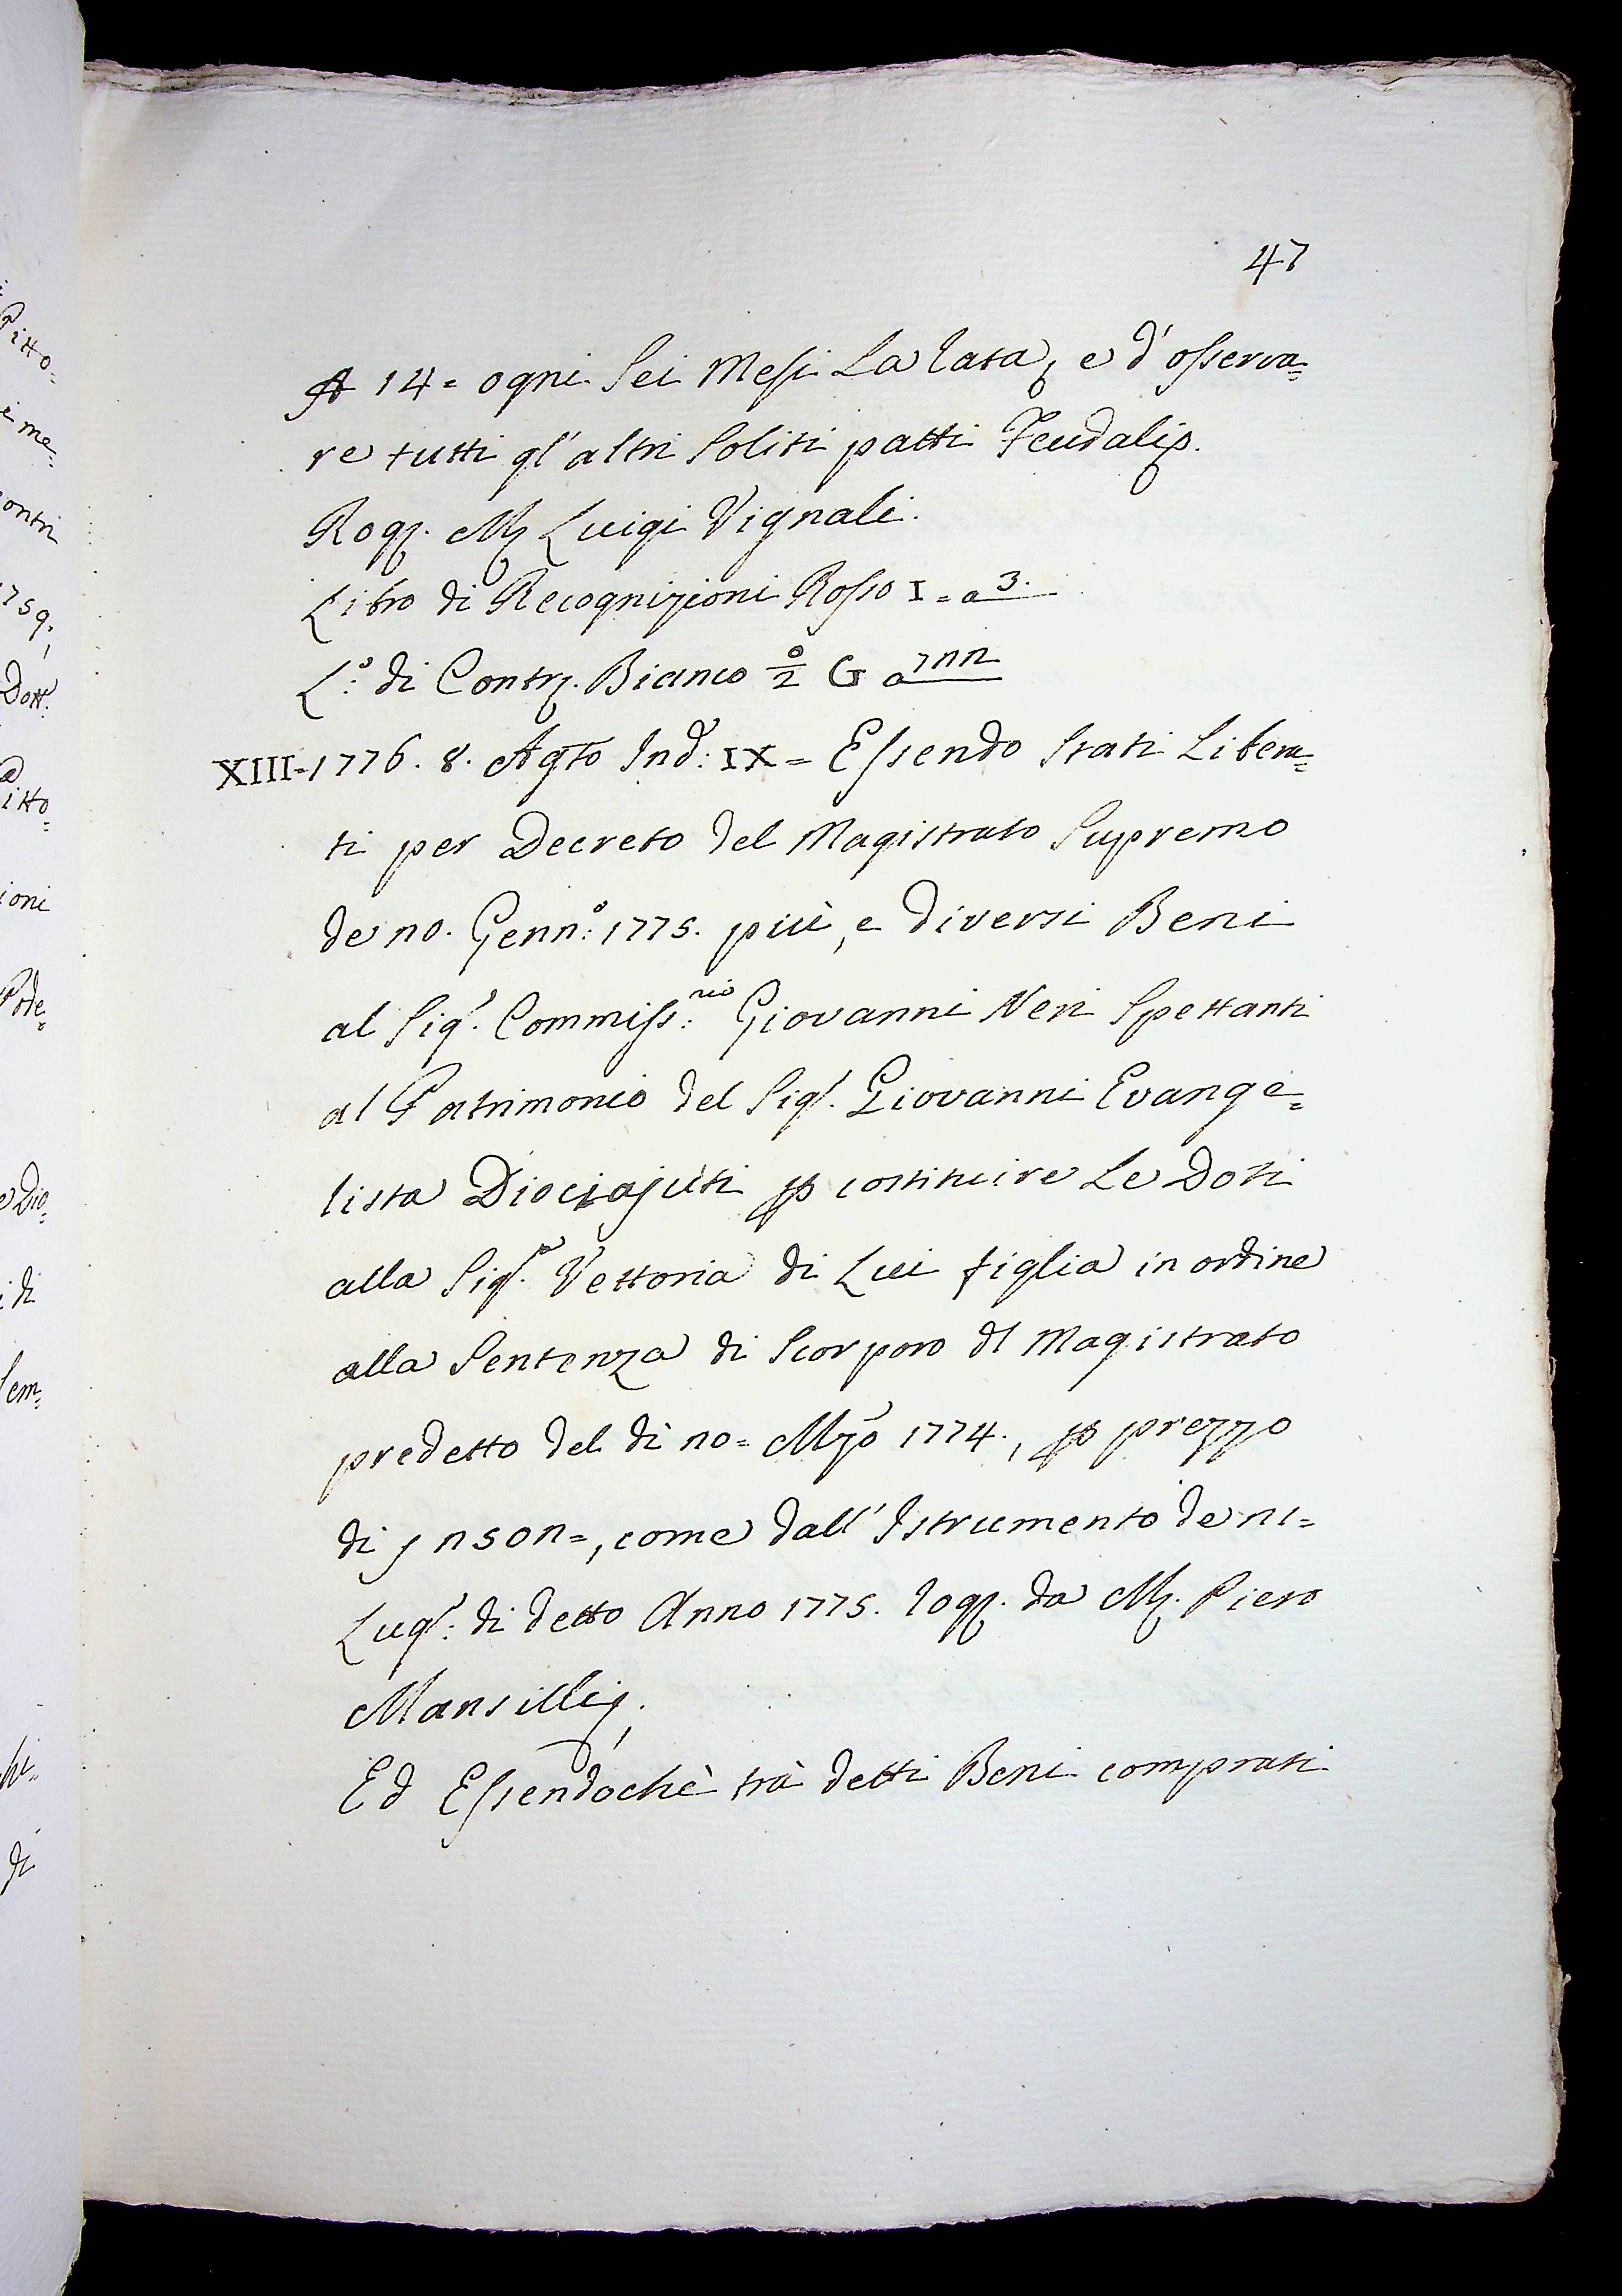 47
A 14= ogni Sei Mesi La rata, e d'osserva=
re tutti gl'altri Soliti patti Feudali.
Rog. M. Luigi Vignali.
Libro di Recognizioni Rosso I = a 3.
L:o di Contr. Bianco G a 122
XIII=1776. 8. Agto Ind: IX = Essendo Stati Libera=
ti per Decreto del Magistrato Supremo
de 20. Genn:o 1775. più, e diversi Beni
al Sigr. Commiss:rio Giovanni Neri Spettanti
al Patrimonio del Sigr. Giovanni Evange=
lista Diociajuti p costituire Le Doti
alla Sigra. Vettoria di Lui figlia in ordine
alla Sentenza di Scorporo dl Magistrato
predetto del dì 20= Mzo 1774., p prezzo
di 2502=, come dall'Istrumento de 21=
Lugl: di detto Anno 1775. rog. da M. Piero
Mansilli.
Ed Essendochè trà detti Beni comprati